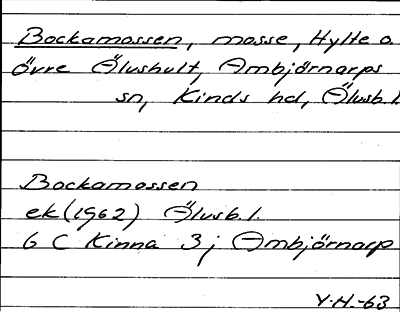 Bockamossen, mosse, Hylte o
övre Älushult, Ambjörnarps
sn, Kinds hd, Älvsb.l.
Bockamossen
ek(1962) Älvsb.l.
6 C Kinna 3 j Ambjörnarp
Y.H.-63